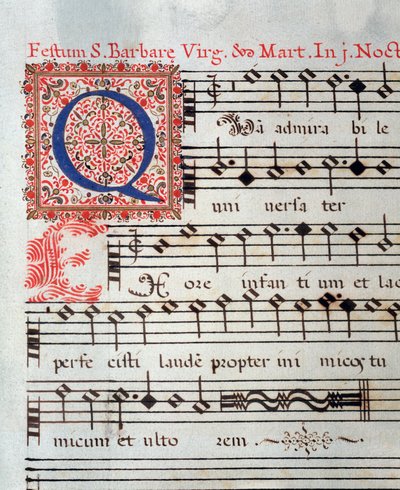 Festum S. Barbare Virg. & Mart. In j. Noct
QVā admira bi le
uni versa ter
EX ore infan ti um et lac
perfe cisti laudē propter ini micos tu
micum et ulto rem.